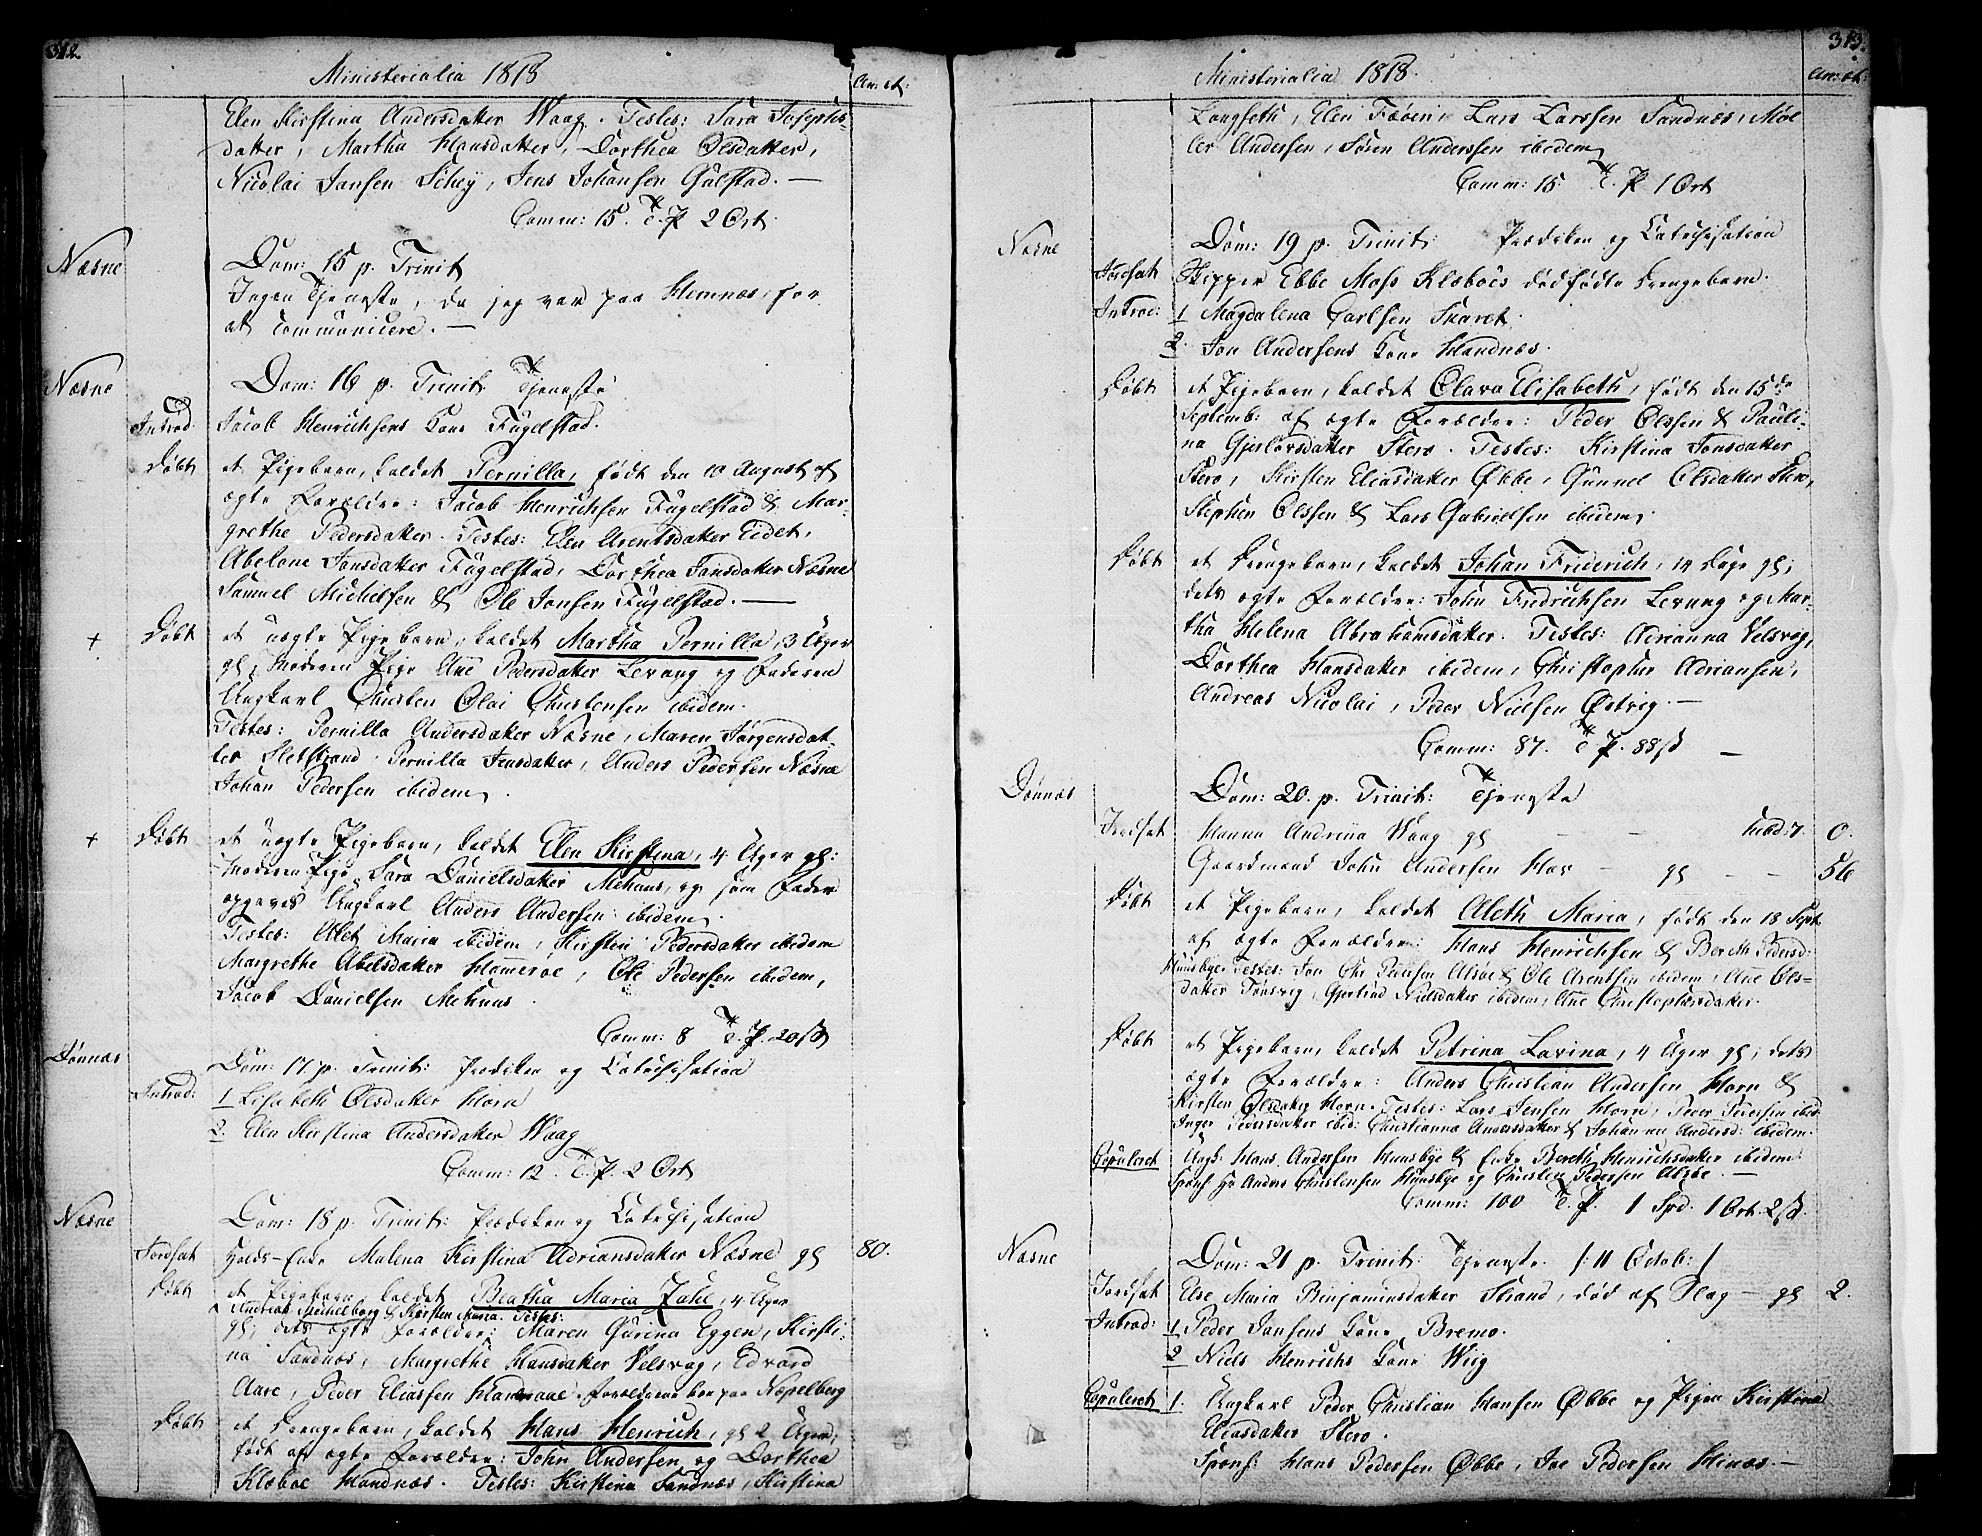 312.
Ministerialia 1818
An: æt:
Elen Kirstina Andersdatter Waag. Testes: Sara Josephs-
datter, Martha Hansdatter, Dorthea Olsdatter,
Nicolai Jansen Schey, Jens Johansen Gulstad. —
Comm: 15. T. P. 2 Ort
Næsne
Dom: 15 p. Trinit
Ingen Tjeneste, da jeg var paa Hemnæs, for
at communicere. —
Næsne
Dom: 16 p. Trinit. Tjeneste
Introd: Jacob Henrichsens Kone Fugelstad.
Døbt et Pigebarn, kaldet Pernilla, født den 10 August af
ægte Forældre: Jacob Henrichsen Fugelstad & Mar-
grethe Pedersdatter. Testes: Elen Arentsdatter Eidet,
Abelone Jonsdatter Fugelstad, Dorthea Jansdatter Næsne
Samuel Michelsen & Ole Jonsen Fugelstad. —
+ Døbt et uægte Pigebarn, kaldet Martha Pernilla, 3 Uger
gl; Moderen Pige Ane Pedersdatter Levang og Faderen
Ungkarl Christen Olai Christensen ibidem.
Testes: Pernilla Andersdatter Næsne, Maren Jørgensdat-
ter Sletstrand, Pernilla Jensdatter, Anders Pedersen Næsne
Johan Pedersen ibidem.
+ Døbt et uægte Pigebarn, kaldet Elen Kirstina, 4 Uger gl:
Moderen Pige Sara Danielsdatter Mehuus, og som Fader
opgaves Ungkarl Anders Andersen ibidem.
Testes: Alet Maria ibidem, Kirsten Pedersdatter ibidem
Margrethe Abelsdatter Hamerøe, Ole Pedersen ibidem,
Jacob Danielsen Mehuus.
Comm: 8 T. P. 20 ß
Dønnæs
Dom: 17 p. Trinit: Prædiken og Catechisation
Introd: 1 Lisabeth Olsdatter Horn
2 Elen Kirstina Andersdatter Waag
Comm: 12. T. P. 2 Ort
Næsne
Dom: 18 p. Trinit: Prædiken og Catechisation
Jordfæst Enke Malena Kirstina Adriansdatter Næsne gl 80.
Døbt et Pigebarn, kaldet Beatha Maria Zahl, 4 Uger
Andreas Michelborg & Kirsten Maria. Testes:
gl; dets ægte Forældre: Maren Gurina Eggen, Kirsti-
na Sandnæs, Margrethe Hansdatter Velsvag, Edvard
Aare, Peder Eliassen Forældrene boe paa Næpelberg
Døbt et Drengebarn, kaldet Hans Henrich, gl 2 Uger,
født af ægte Forældre: John Andersen og Dorthea
Klæboe Handnæs. Testes: Kirstina Sandnæs, Kirstina
313.
Ministerialia 1818.
An: æt:
Langseth, Elen Fæøen, Lars Larssen Sandnæs, Møl
ler Andersen, Søren Anderssen ibidem
Comm: 15 T. P. 1 Ort
Næsne
Dom: 19 p. Trinit: Prædiken og Catechisation
Jordfæst Skipper Ebbe Moss Klæboes dødfødte Drengebarn.
Introd: 1 Magdalena Carlsen Skaret.
2. Jon Andersens Kone Handnæs.
Døbt et Pigebarn, kaldet Clara Elisabeth, født den 15de
Septemb: af ægte Forældre: Peder Olssen & Pauli-
na Gjerlovsdatter Sterø. Testes: Kirstina Jonsdatter
Sterø, Kirsten Eliasdatter Øbbe, Gunnel Olsdatter Sterø,
Stephen Olssen & Lars Gabrielsen ibidem.
Døbt et Drengebarn, kaldet Johan Friderich, 14 Dage gl;
dets ægte Forældre: John Fredrichsen Levang og Mar-
tha Helena Abrahamsdatter. Testes: Adrianna Velsvog,
Dorthea Hansdatter ibidem, Christopher Adriansen,
Andreas Nicolai, Peder Nielsen Østvig. —
Comm: 87. T. P. 88 ß —
Dønnæs
Dom: 20. p. Trinit: Tjeneste
Jordfæst Hanna Andrina Waag gl — — 7. 0.
Gaardmand John Andersen Hov — gl — — 56
Døbt et Pigebarn, kaldet Aleth Maria, født den 18 Sept
af ægte Forældre: Hans Henrichsen & Bereth Pedersd:
Huusbye. Testes: Jon Chr: Alsøe & Ole Arentsen ibidem, Ane Ols-
datter Tønsvig, Gjertrud Nielsdatter ibidem, Ane Christophersdatter.
Døbt et Pigebarn, kaldet Petrina Lavina, 4 Uger gl; dets
ægte Forældre: Anders Christian Andersen Horn &
Kirsten Olsdatter Horn. Testes: Lars Jensen Horn, Peder Pedersen ibid
Inger Pedersdatter ibid: Christianna Andersdatter & Johanna Andersd: ibidem.
Copuleret Ungk: Hans Andersen Huusbye & Enke Bereth Henrichsdatter ibidem
Spons: Anders Christensen Huusbye og Christen Pedersen Alsøe. —
Comm: 100 T. P. 1 Spd. 1 Ort 2 ß.
Næsne
Dom: 21 p. Trinit: Tjeneste. /: 11 Octob: /
Jordfæst Else Maria Benjaminsdatter Strand, død af Slag — gl 2.
Introd: 1 Peder Jansens Kone Bremo.
2 Niels Henrichs Kone Wiig
Copuleret 1. Ungkarl Peder Christian Hansen Øbbe og Pigen Kirstina
Eliasdatter Sterø.
Spons: Hans Pedersen Øbbe, Joe Pedersen Hinæs. —